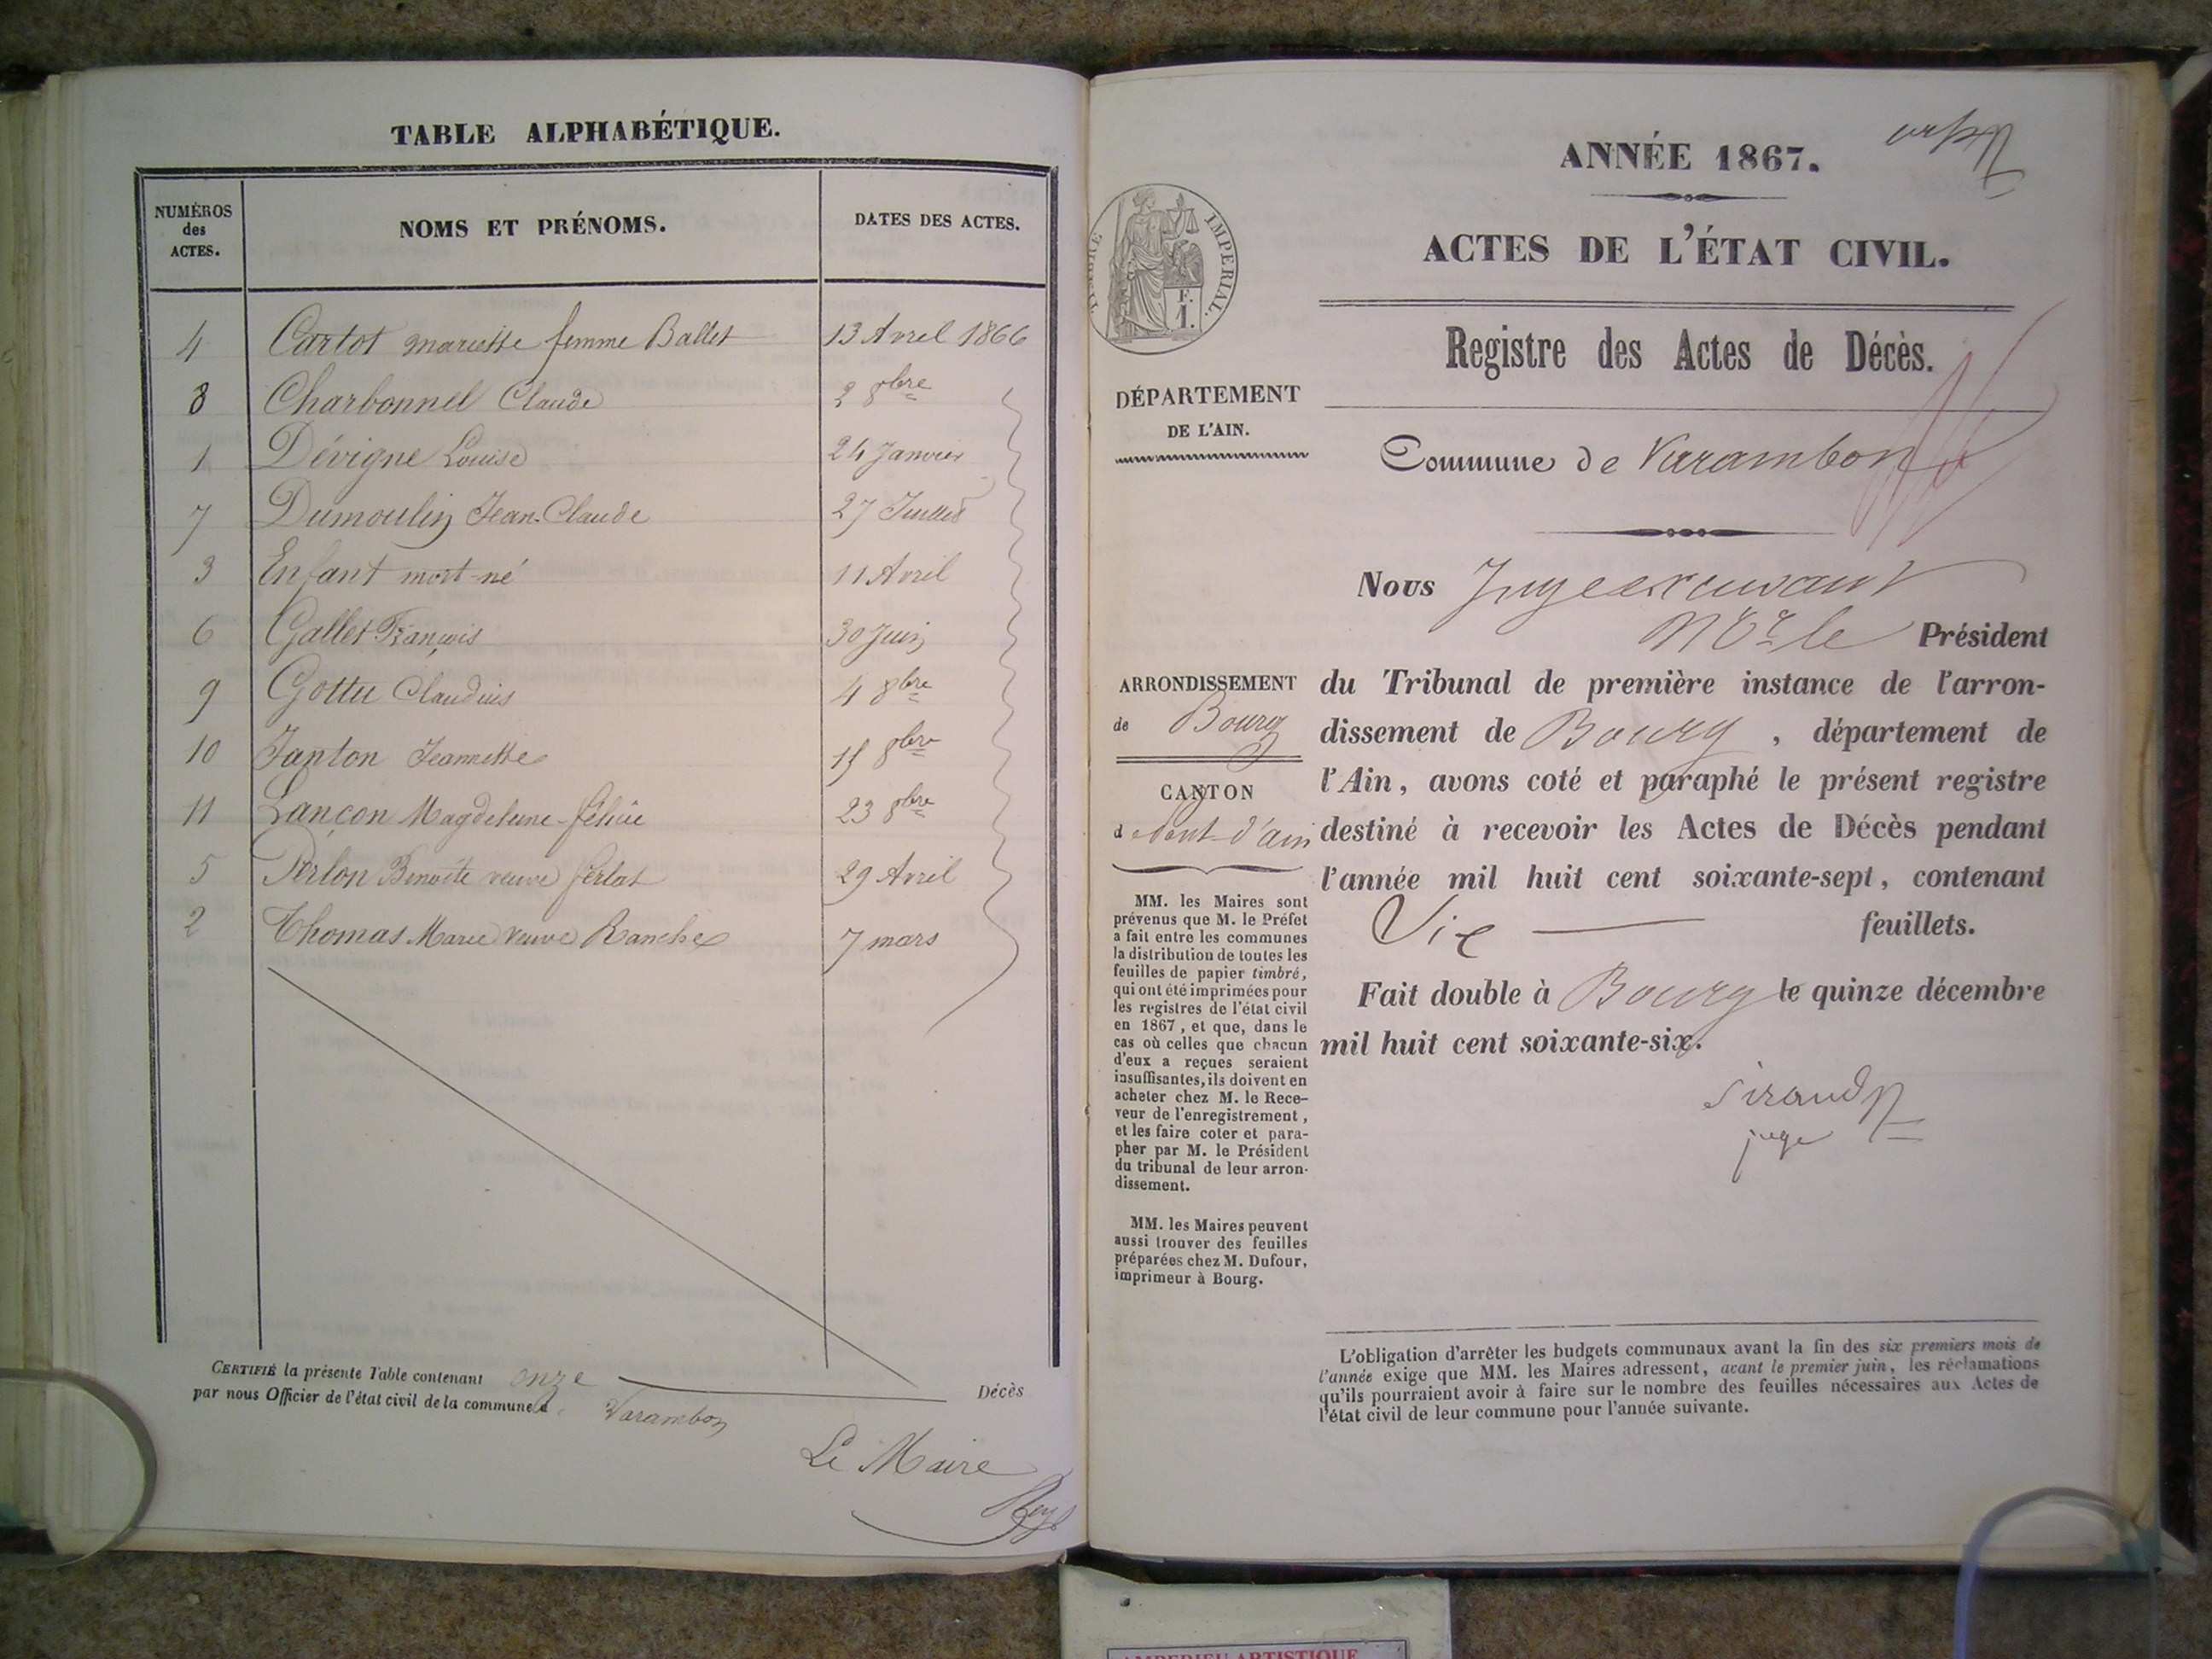 TABLE ALPHABÉTIQUE.
NUMÉROS
des
ACTES.
NOMS ET PRÉNOMS.
DATES DES ACTES.
4 Cartot mariette femme Ballet 13 Avril 1866
8 Charbonnel Claude 2 8bre
1 Dévigne Louise 24 Janvier
7 Dumoulin Jean-Claude 27 Juillet
3 Enfant mort-né 11 Avril
6 Gallet François 30 Juin
9 Gottu Claudius 4 8bre
10 Janton Jeannette 15 8bre
11 Lançon Magdeleine-félicie 23 8bre
5 Perlon Benoîte veuve ferlat 29 Avril
2 Thomas Marie veuve Ranche 7 mars
CERTIFIÉ la présente Table contenant onze Décès
par nous Officier de l'état civil de la commune de Varambon
Le Maire
ANNÉE 1867.
ACTES DE L'ÉTAT CIVIL.
Registre des Actes de Décès.
TIMBRE IMPERIAL.
F.
1.
DÉPARTEMENT
DE L'AIN.
Commune de Varambon
Nous Juge
Mr le Président
ARRONDISSEMENT
de Bourg
CANTON
de Pont-d'ain
du Tribunal de première instance de l'arron-
dissement de Bourg, département de
l'Ain, avons coté et paraphé le présent registre
destiné à recevoir les Actes de Décès pendant
l'année mil huit cent soixante-sept, contenant
Six feuillets.
Fait double à Bourg le quinze décembre
mil huit cent soixante-six.
Sirand
juge
MM. les Maires sont
prévenus que M. le Préfet
a fait entre les communes
la distribution de toutes les
feuilles de papier timbré,
qui ont été imprimées pour
les registres de l'état civil
en 1867, et que, dans le
cas où celles que chacun
d'eux a reçues seraient
insuffisantes, ils doivent en
acheter chez M. le Rece-
veur de l'enregistrement,
et les faire coter et para-
pher par M. le Président
du tribunal de leur arron-
dissement.
MM. les Maires peuvent
aussi trouver des feuilles
préparées chez M. Dufour,
imprimeur à Bourg.
L'obligation d'arrêter les budgets communaux avant la fin des six premiers mois de
l'année exige que MM. les Maires adressent, avant le premier juin, les réclamations
qu'ils pourraient avoir à faire sur le nombre des feuilles nécessaires aux Actes de
l'état civil de leur commune pour l'année suivante.
AMBERIEU ARTISTIQUE